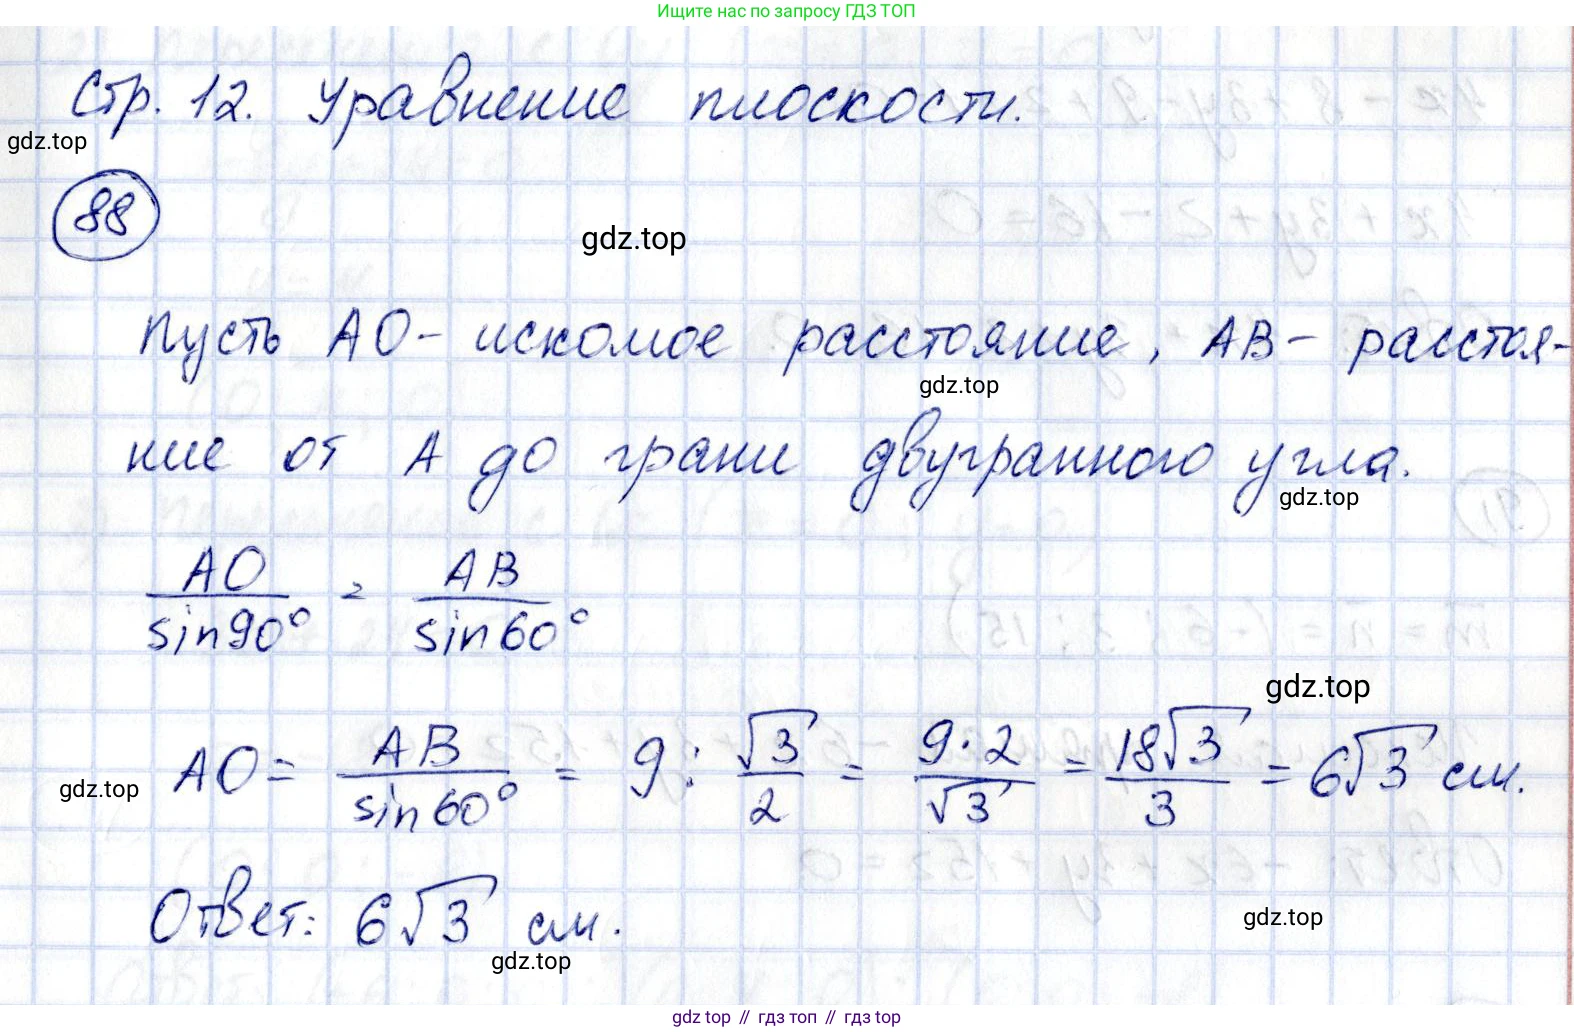 Ищите нас по запросу ГДЗ ТОП
Стр. 12. Уравнение плоскости.
gdz.top
88
gdz.top
Пусть AO - искомое расстояние, AB - расстоя-
gdz.top
ние от A до грани двугранного угла.
gdz.top
AO/sin90° = AB/sin60°
gdz.top
AO = AB/sin60° = 9 : √3/2 = 9·2/√3 = 18√3/3 = 6√3 см.
gdz.top
Ответ: 6√3 см.
gdz.top
gdz.top
gdz top // гдз топ // гдз top